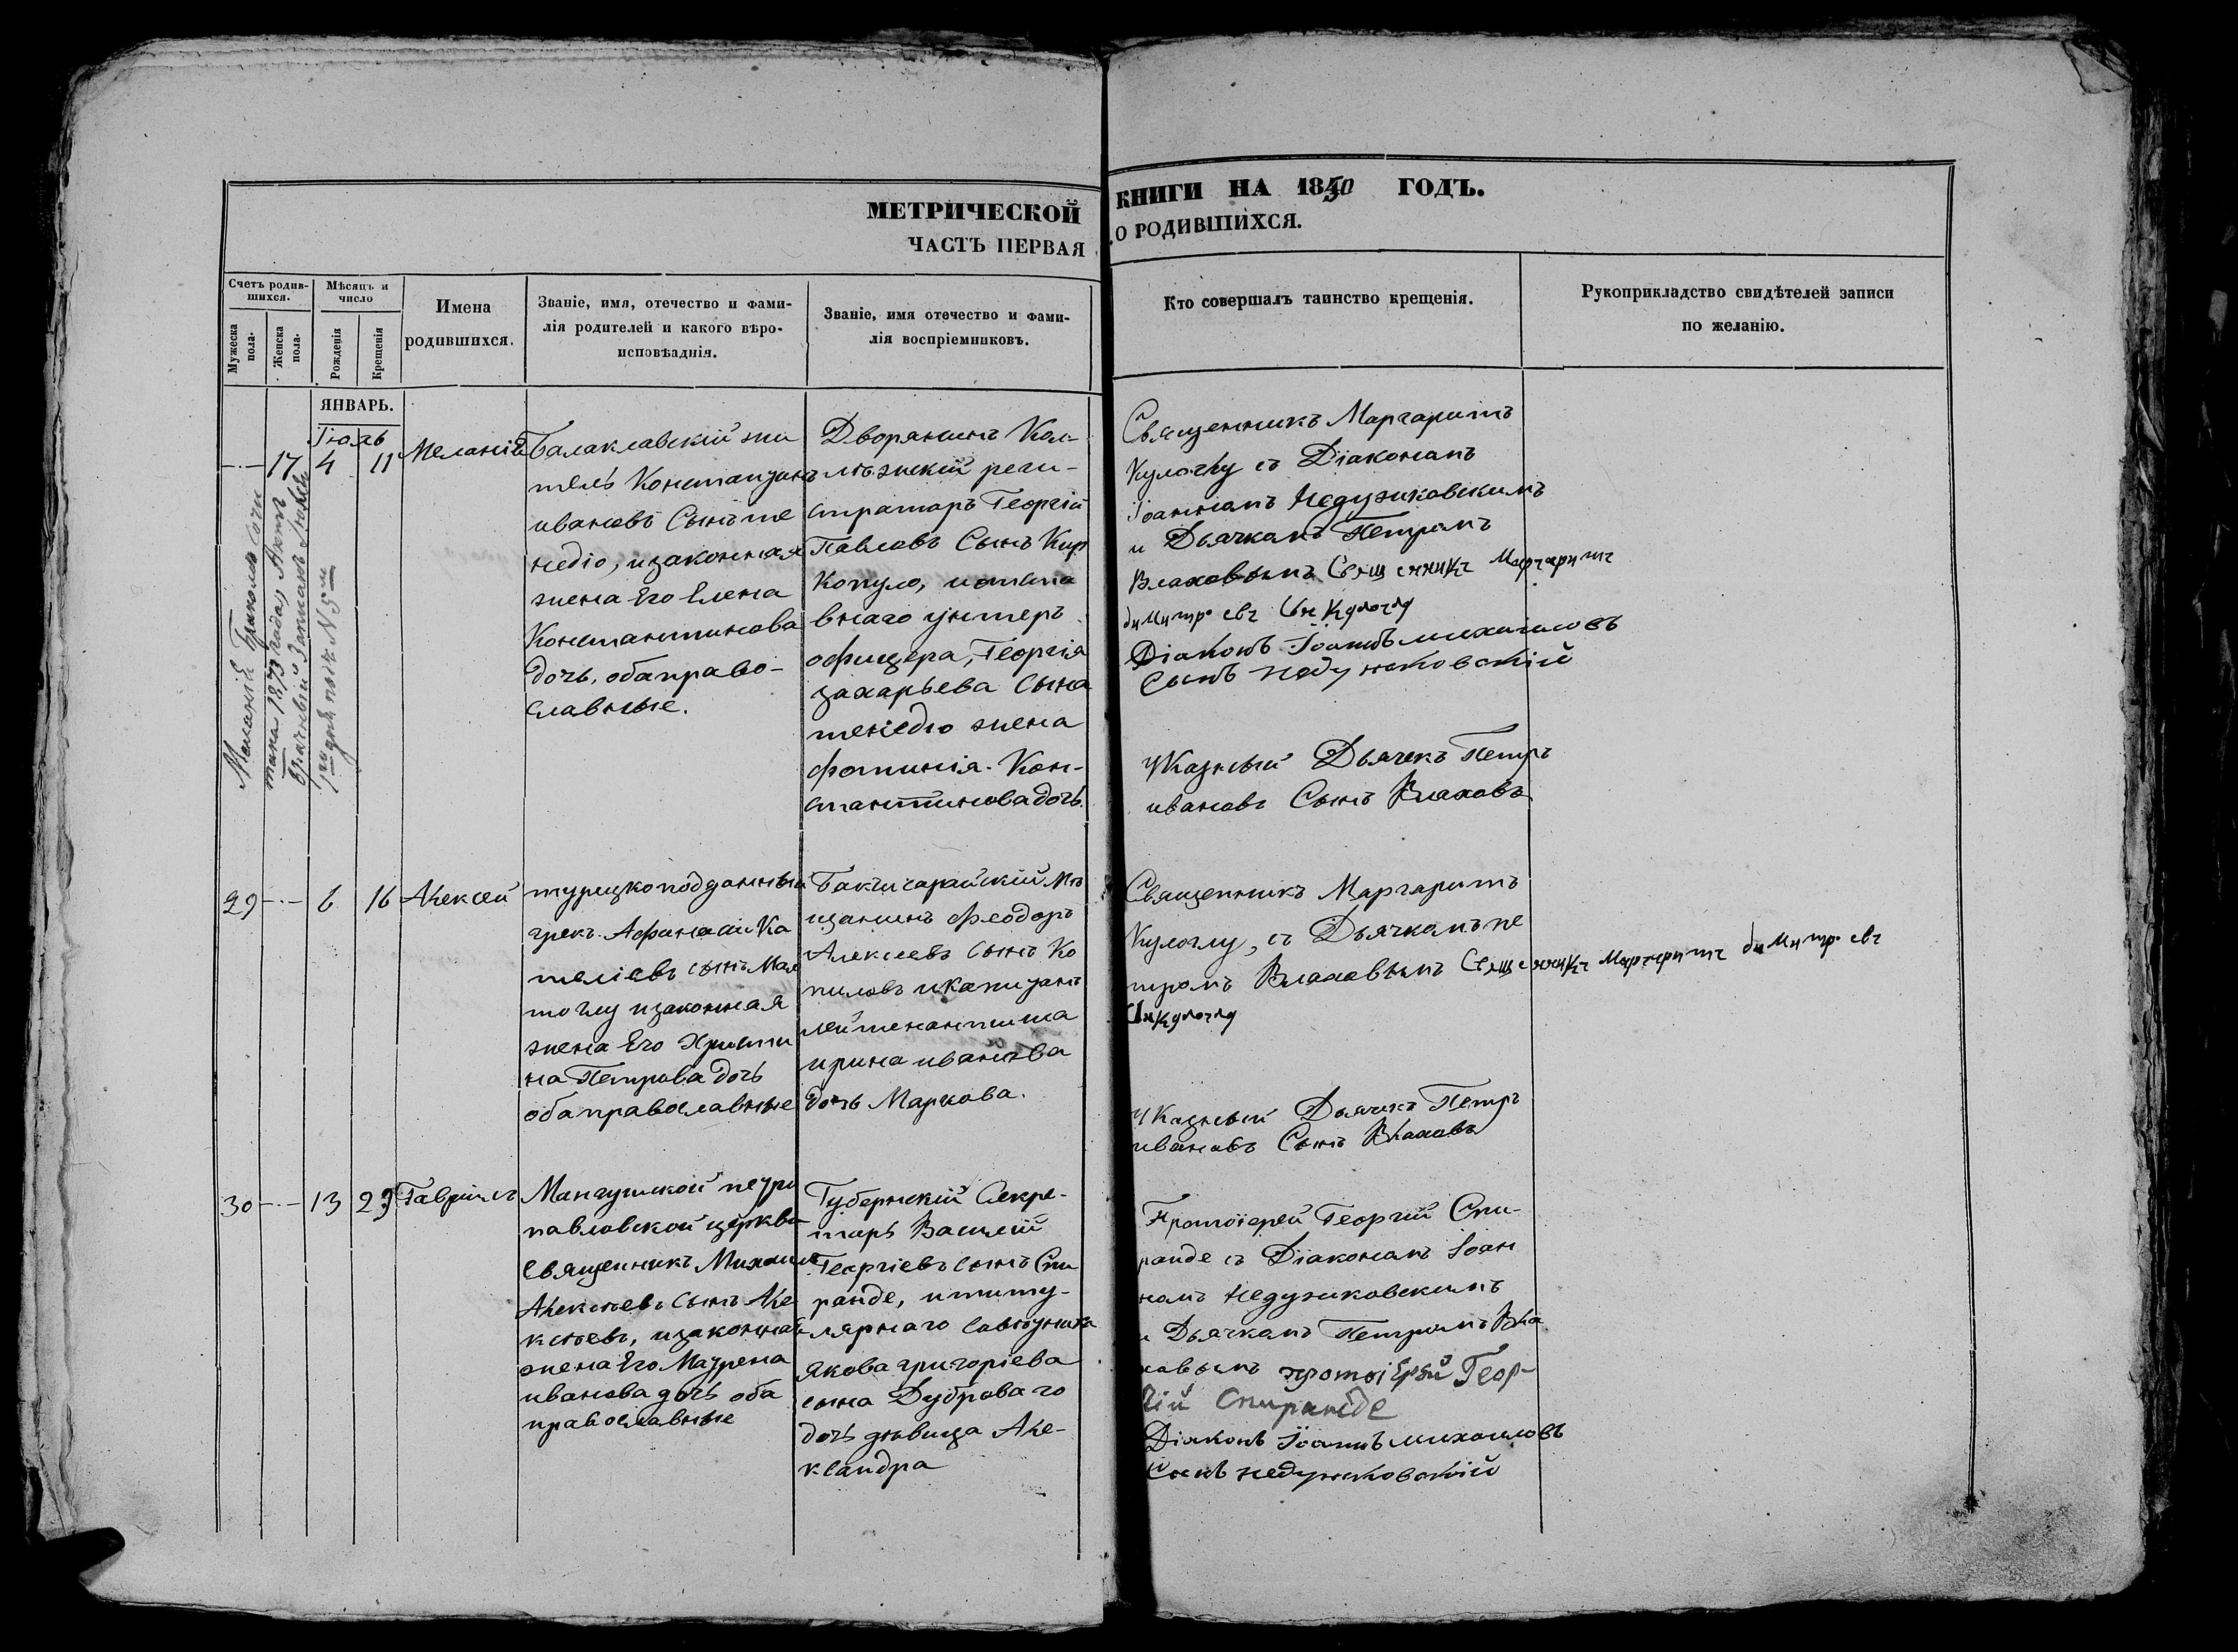 МЕТРИЧЕСКОЙ
ЧАСТЬ ПЕРВАЯ
КНИГИ НА 1850 ГОДЪ.
О РОДИВШИХСЯ.
Счетъ родив-
шихся.
Мужеска
пола.
Женска
пола.
Мѣсяцъ и
число
Рожденія
Крещенія
Имена
родившихся.
Званіе, имя, отечество и фами-
лія родителей и какого вѣро-
исповѣднія.
Званіе, имя отечество и фами-
лія воспріемниковъ.
Кто совершалъ таинство крещенія.
Рукоприкладство свидѣтелей записи
по желанію.
ЯНВАРЬ.
Іюль
17 4 11
Меланія
Балаклавскій жи
тель Константинъ
ивановъ Сынъ те
недіо, изаконная
жена Его Елена
Константинова
дочь, оба право-
славные.
Дворянинъ Кол-
лѣжскій реги-
страторъ Георгій
Павловъ Сынъ Кир
Копуло, и отста
внаго унтеръ
офицера, Георгія
захарьева Сына
тенедіо жена
фотинія Кон-
стантинова дочь.
Священникъ Маргаритъ
Кулоглу съ Діакономъ
Іоанномъ Недзиковскимъ
и Дьячкомъ Петромъ
Влаховымъ Священникъ Маргаритъ
димитріевъ Сын Кулоглу
Діаконъ Іоаннъ михаиловъ
Сынъ недзиковскій
Указный Дьячекъ Петръ
ивановъ Сынъ Влаховъ
29 6 16 Алексей
турецкоподданный
грекъ Афанасій Ка
теліевъ сынъ
изаконная
жена Его Христи
на Петрова дочь
оба православные
Бакчисарайскій мѣ
щанинъ феодоръ
Алексеевъ Сынъ Ко
пиловъ и капитанъ
лейтенантша
ирина иванова
дочь Маркова.
Священникъ Маргаритъ
Кулоглу, съ Дьячкомъ пе
тромъ Влаховымъ Священникъ Маргаритъ димитріевъ
Сн Кулоглу
Указный Дьячекъ Петръ
ивановъ Сынъ Влаховъ
30 13 23 Гавріилъ
Мангушской петро
павловской церкви
Священникъ Михаилъ
Алексѣевъ Сынъ Але
ксѣевъ, изаконная
жена Его Маурена
иванова дочь оба
православные
Губернскій Секре-
тарь Василій
Георгіевъ сынъ Спи
ранде, и титу-
лярнаго совѣтника
Якова григоріева
сына Дуброваго
дочь дѣвица Але-
ксандра
Протоіерей Георгій Спи-
ранде съ Діакономъ Іоан
номъ Недзиковскимъ
и Дьячкомъ Петромъ Вла
ховымъ протоіерей Геор-
гій Спиранде
Діаконъ Іоаннъ михаиловъ
Сынъ недзиковскій